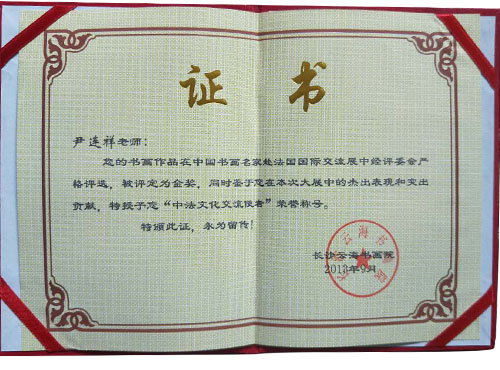 证 书
尹连祥老师：
您的书画作品在中国书画名家赴法国国际交流展中经评委会严
格评选，被评定为金奖，同时鉴于您在本次大展中的杰出表现和突出
贡献，特授予您“中法文化交流使者”荣誉称号。
特颁此证，永为留传！
长沙云海书画院
2013年9月